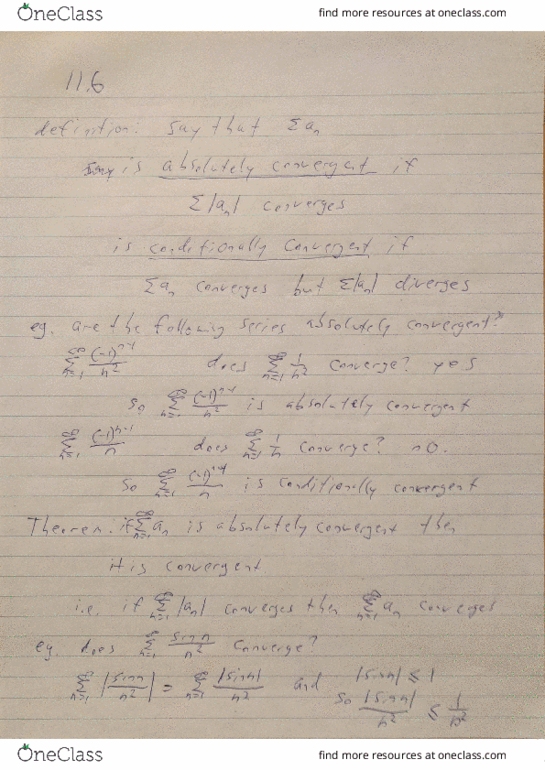 OneClass find more resources at oneclass.com
11.6
definition: say that Σaₙ
is absolutely convergent if
Σ|aₙ| converges
is conditionally convergent if
Σaₙ converges but Σ|aₙ| diverges
eg. are the following series absolutely convergent?
∑_{n=1}^∞ (-1)^{n-1}/n² does ∑_{n=1}^∞ 1/n² converge? yes
so ∑_{n=1}^∞ (-1)^{n-1}/n² is absolutely convergent
∑_{n=1}^∞ (-1)^{n-1}/n does ∑_{n=1}^∞ 1/n converge? no.
so ∑_{n=1}^∞ (-1)^{n-1}/n is conditionally convergent
Theorem. if ∑_{n=1}^∞ aₙ is absolutely convergent then
it is convergent
i.e. if ∑_{n=1}^∞ |aₙ| converges then ∑_{n=1}^∞ aₙ converges
eg. does ∑_{n=1}^∞ sin n/n² converge?
∑_{n=1}^∞ |sin n/n²| = ∑_{n=1}^∞ |sin n|/n² and |sin n| ≤ 1
so |sin n|/n² ≤ 1/n²
OneClass find more resources at oneclass.com